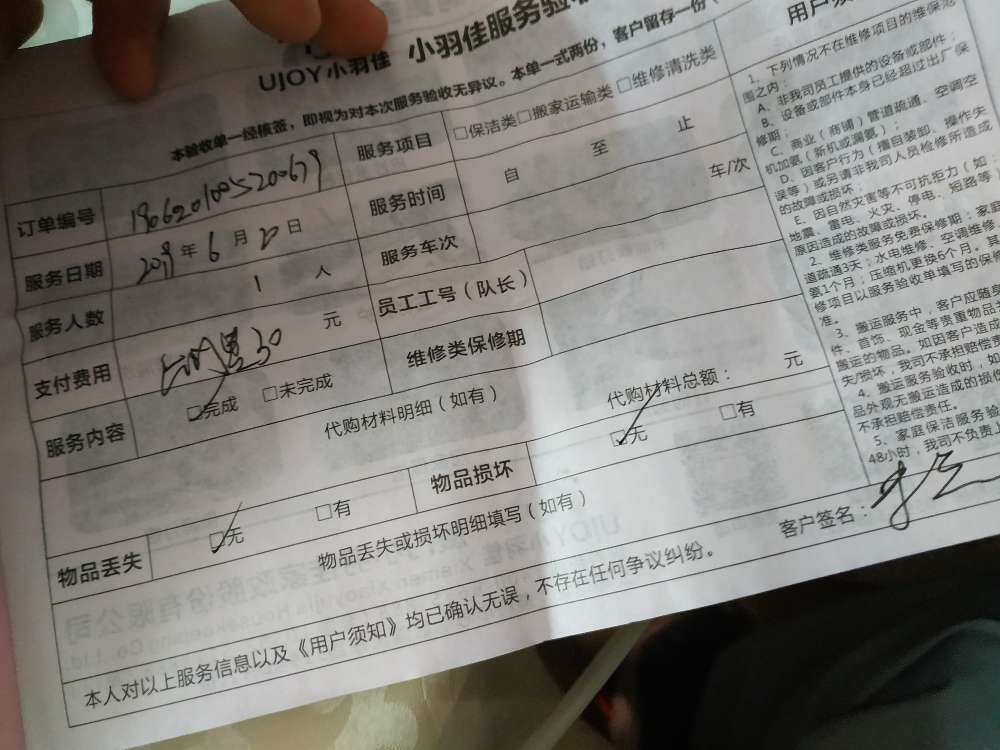 UJOY小羽佳 小羽佳服务验收
本验收单一经核签，即视为对本次服务验收无异议。本单一式两份，客户留存一份（
订单编号
服务项目 □保洁类□搬家运输类 □维修清洗类
服务日期 2019年6月20日
服务时间 自 至 止
服务人数 1 人
服务车次 车/次
支付费用 元
员工工号（队长）
服务内容 □完成 □未完成
维修类保修期
代购材料明细（如有）
代购材料总额： 元
物品丢失 □无 □有
物品损坏 □无 □有
物品丢失或损坏明细填写（如有）
本人对以上服务信息以及《用户须知》均已确认无误，不存在任何争议纠纷。
客户签名：
用户须
1、下列情况不在维修项目的维保范
围之内：
A、非我司员工提供的设备或部件；
B、设备或部件本身已经超过出厂保
修期；
C、商业（商铺）管道疏通、空调空
机加氨（新机或漏氨）；
D、因客户行为（擅自装卸、操作失
误等）或另请非我司人员检修所造成
的故障或损坏；
E、因自然灾害等不可抗拒力（如：
地震、雷电、火灾、停电、短路等）
原因造成的故障或损坏。
2、维修类服务免费保修期：家庭
道疏通3天；水电维修、空调维修
氨1个月；压缩机更换6个月。其
修项目以服务验收单填写的保修
准。
3、搬运服务中，客户应随身
件、首饰、现金等贵重物品
搬运的物品。如因客户造成
失/损坏，我司不承担赔偿责
4、搬运服务验收时，如
品外观无搬运造成的损伤
不承担赔偿责任。
5、家庭保洁服务验
48小时，我司不负责上